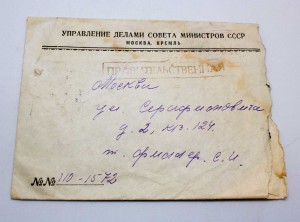 УПРАВЛЕНИЕ ДЕЛАМИ СОВЕТА МИНИСТРОВ СССР
МОСКВА, КРЕМЛЬ
ПРАВИТЕЛЬСТВЕННАЯ
Москва
ул Серафимовича
д. 2, кв. 124.
т.
С.И.
№№ 110-1572